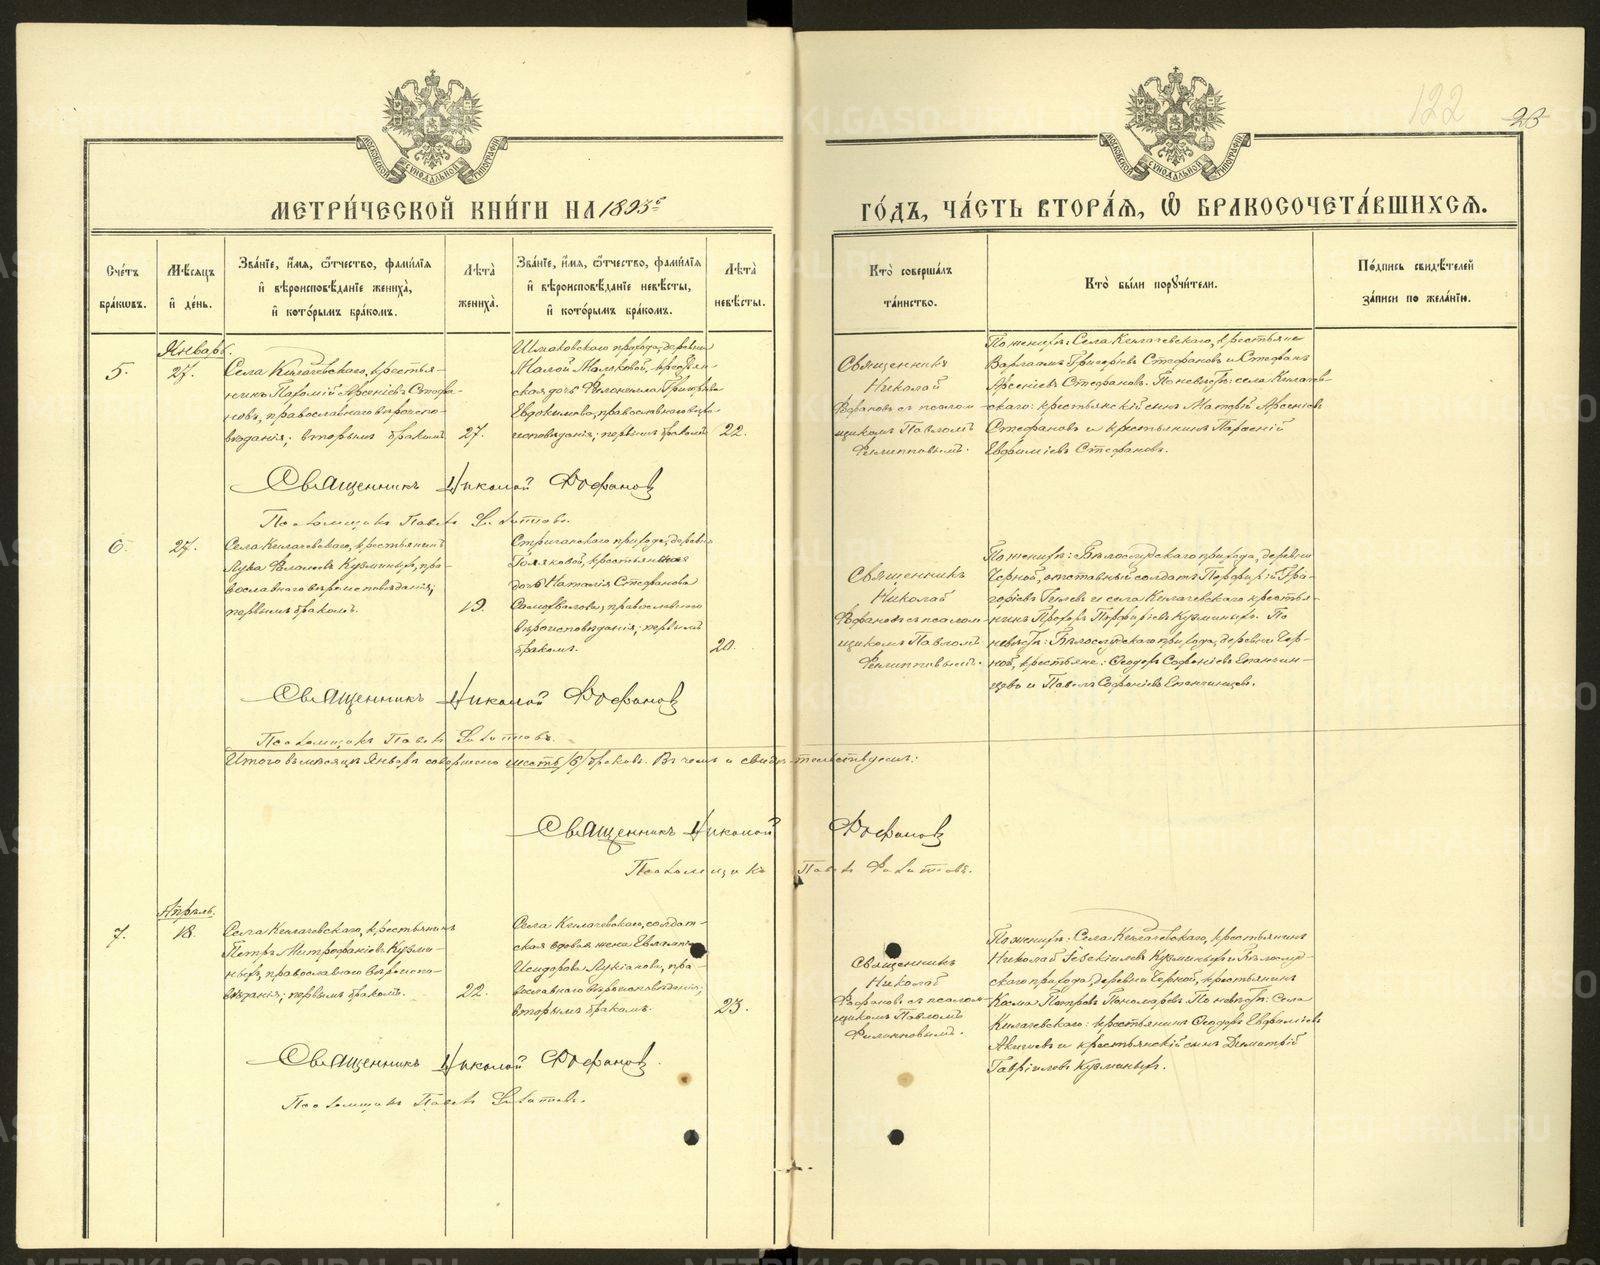 122
23
МЕТРИ́ЧЕСКОЙ КНИ́ГИ НА 1893 г.
ГО́ДЪ, ЧА́СТЬ ВТОРА́Я, Ѡ БРАКОСОЧЕТА́ВШИХСЯ.
Сче́тъ бра́ковъ.
Мѣ́сяцъ и де́нь.
Зва́нїе, и́мя, ѻ҆́тчество, фами́лїя
и вѣроисповѣ́данїе жениха̀,
и кото́рымъ бра́комъ.
Лѣ́та жениха̀.
Зва́нїе, и́мя, ѻ҆́тчество, фами́лїя
и вѣроисповѣ́данїе невѣ́сты,
и кото́рымъ бра́комъ.
Лѣ́та невѣ́сты.
Кто̀ соверша́лъ та́инство.
Кто̀ бы́ли порꙋчи́тели.
По́дпись свидѣ́телей за́писи по жела́нїю.
Январь.
5.
27.
Села Килачевскаго, крестья-
нинъ Пармѣній Арсеніевъ Стефа-
новъ, православнаго вѣроиспо-
вѣданія; вторымъ бракомъ
27.
деревни
Малой Маляковой, крестьян-
ская дочь Григорьева
Евдокимова, православнаго вѣро-
исповѣданія; первымъ бракомъ
22.
Священникъ
Николай
съ псалом-
щикомъ Павломъ
Филипповымъ.
По женихѣ: Села Килачевскаго, крестьяне
Григоріевъ Стефановъ и Стефанъ
Арсеніевъ Стефановъ. По невѣстѣ: села Килачев-
скаго: крестьянскій сынъ Матвѣй Арсеніевъ
Стефановъ и крестьянинъ
Евфиміевъ Стефановъ.
Священникъ Николай
Псаломщикъ Павелъ Филипповъ.
6.
27.
Села Килачевскаго, крестьянинъ
Лука Кузминыхъ, пра-
вославнаго вѣроисповѣданія;
первымъ бракомъ.
19.
Стриганскаго прихода, деревни
крестьянская
дочь Наталія Стефанова
православнаго
вѣроисповѣданія; первымъ
бракомъ.
20.
Священникъ
Николай
съ псалом-
щикомъ Павломъ
Филипповымъ.
По женихѣ: Бѣлослудскаго прихода, деревни
Черной, отставный солдатъ Порфирій Гри-
горіевъ и села Килачевскаго крестья-
нинъ Порфиріевъ Кузминыхъ. По
невѣстѣ: Бѣлослудскаго прихода, деревни Чер-
ной, крестьяне: Ѳеодоръ Софоніевъ Епанчин-
цевъ и Павелъ Софоніевъ Епанчинцевъ.
Священникъ Николай
Псаломщикъ Павелъ Филипповъ.
Итого въ мѣсяцѣ Январѣ совершено шесть /6/ браковъ. Въ чемъ и свидѣтельствуемъ:
Священникъ Николай
Псаломщикъ Павелъ Филипповъ.
Апрѣль.
7.
18.
Села Килачевскаго, крестьянинъ
Петръ Митрофаніевъ Кузми-
ныхъ, православнаго вѣроиспо-
вѣданія; первымъ бракомъ.
22.
Села Килачевскаго, солдат-
ская вдовая жена
Исидорова Лукіанова, пра-
вославнаго вѣроисповѣданія;
вторымъ бракомъ.
23.
Священникъ
Николай
съ псалом-
щикомъ Павломъ
Филипповымъ.
По женихѣ: Села Килачевскаго, крестьянинъ
Николай Іезекіилевъ Кузминыхъ и Бѣлослуд-
скаго прихода, деревни Черной, крестьянинъ
Косма Петровъ Пономаревъ. По невѣстѣ: Села
Килачевскаго: крестьянинъ Ѳеодоръ Евфиміевъ
и крестьянскій сынъ Димитрій
Гавріиловъ Кузминыхъ.
Священникъ Николай
Псаломщикъ Павелъ Филипповъ.
METRIKI.GASO-URAL.RU